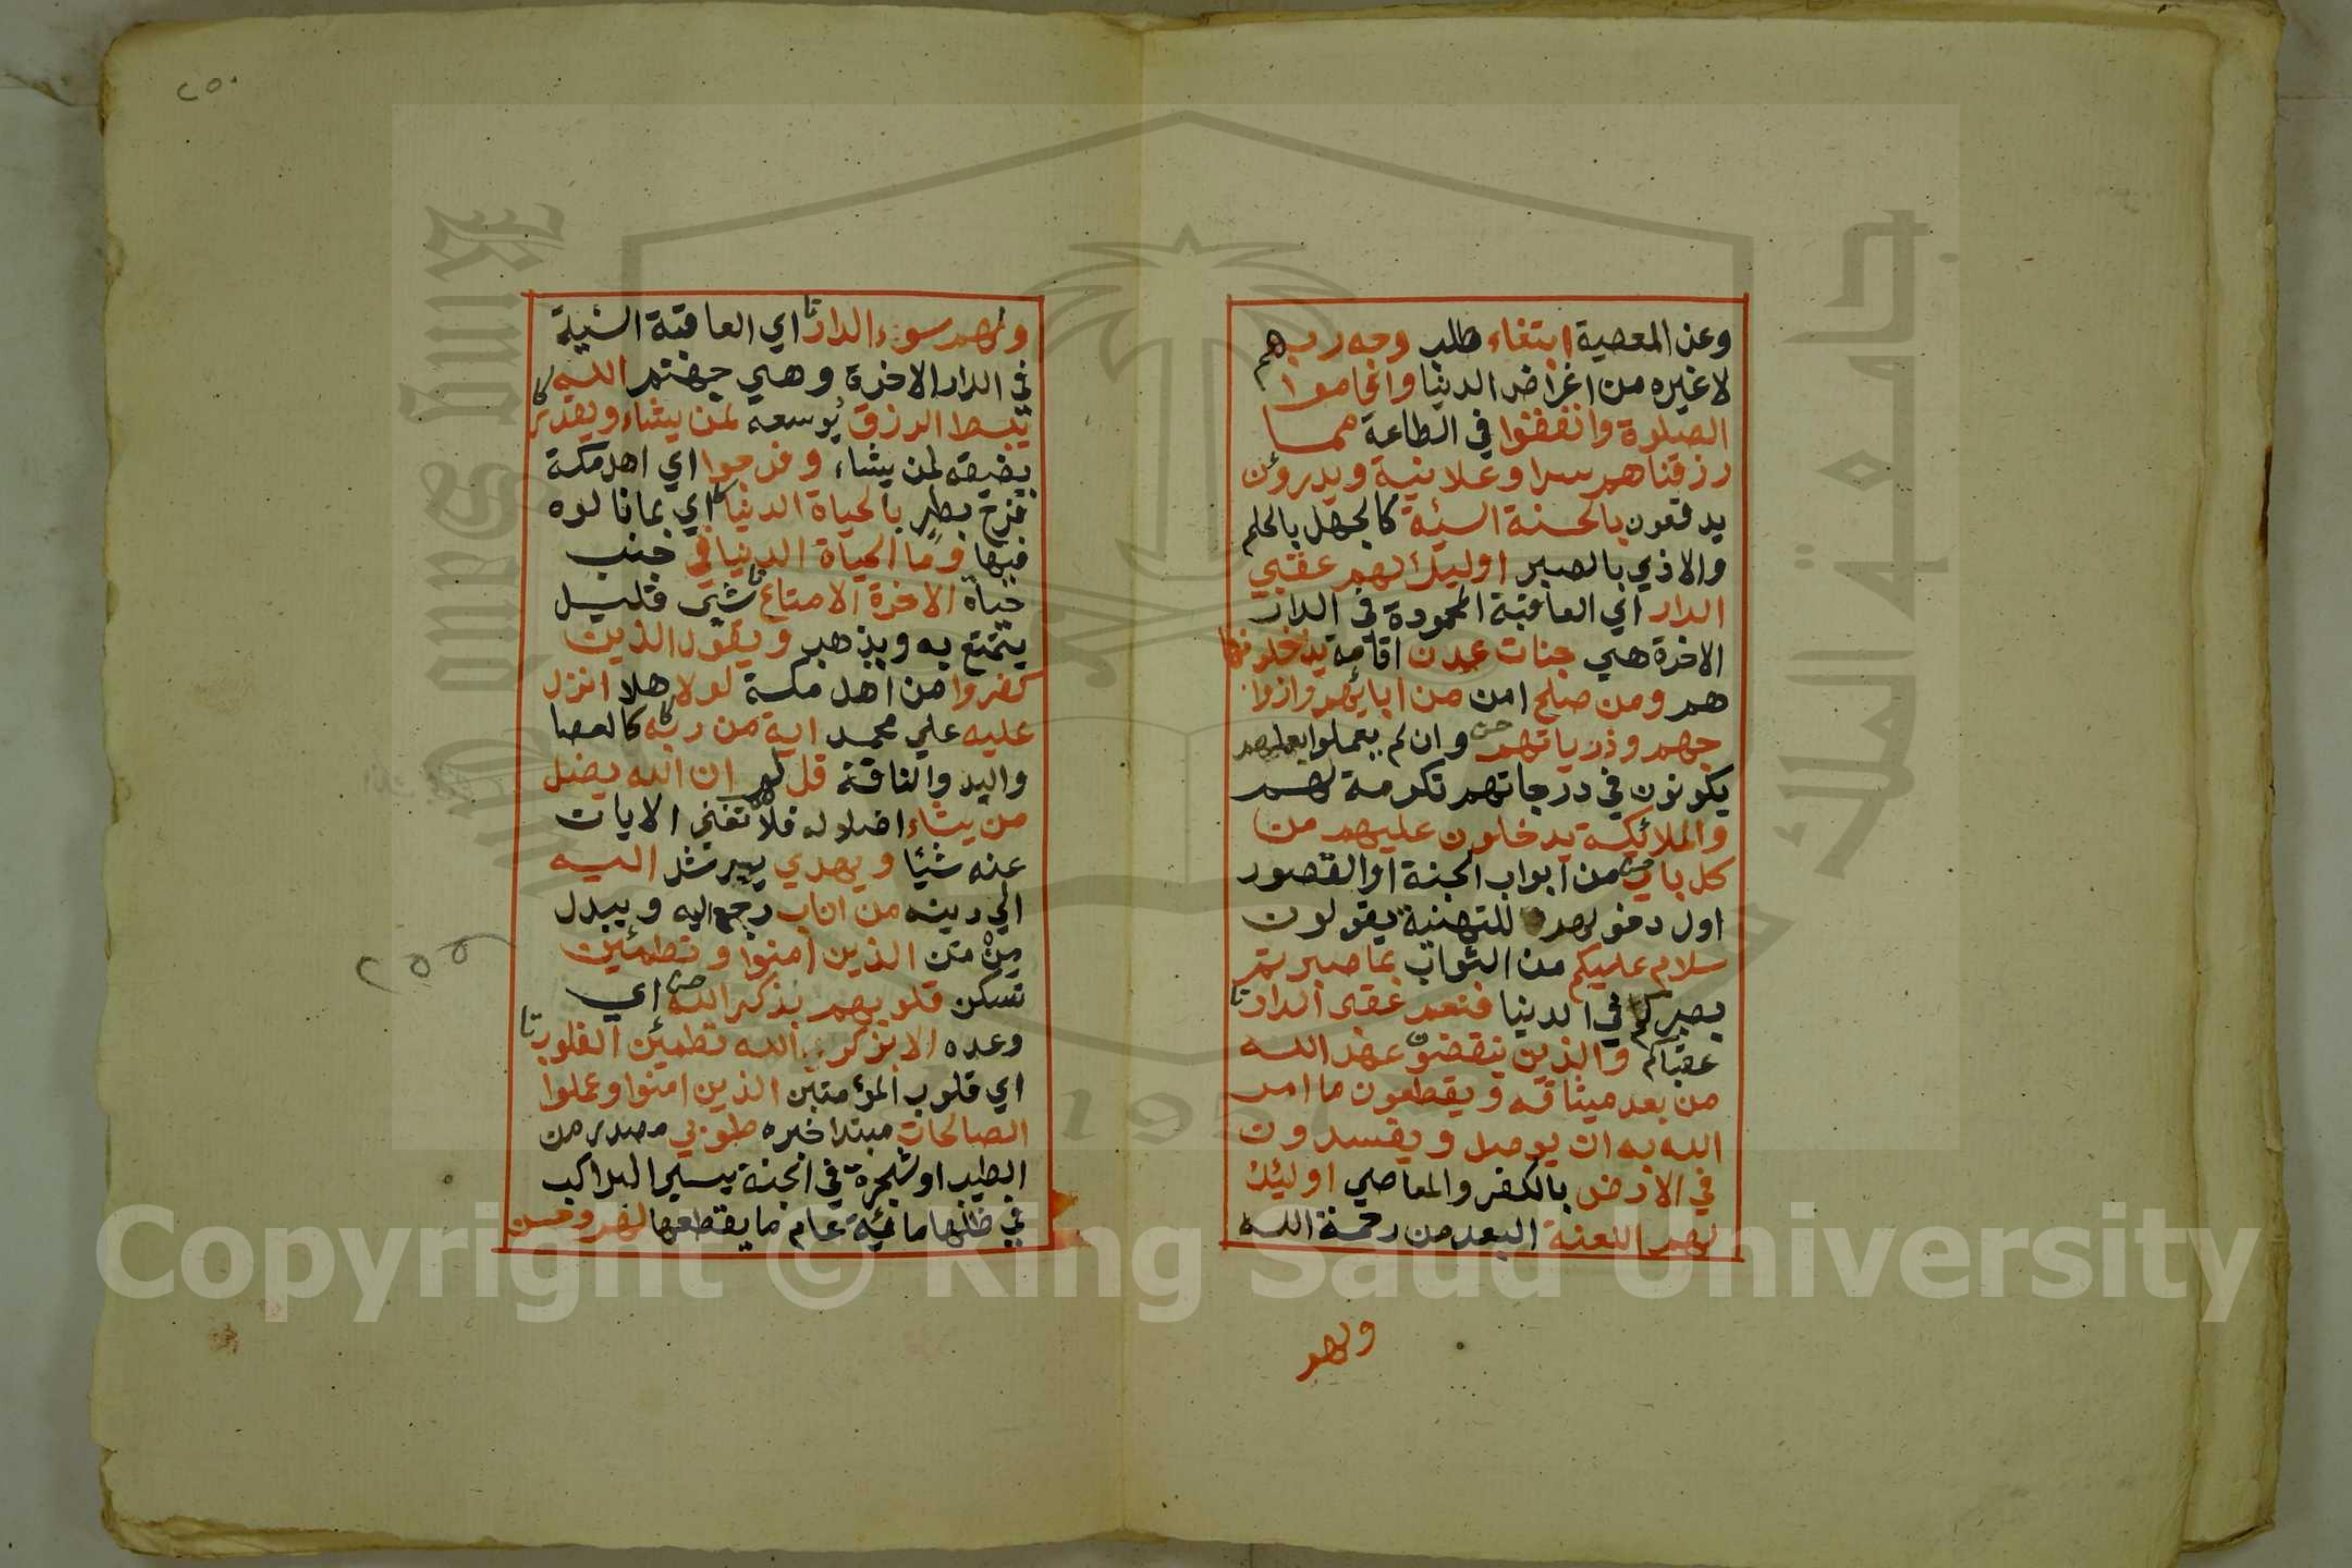 وعن المعصية ابتغاء طلب وجه ربهم
لا غيره من اغراض الدنيا واقاموا
الصلوة وانفقوا في الطاعة مما
رزقناهم سرا وعلانية ويدرؤن
يدفعون بالحسنة السيئة كالجهل بالحلم
والاذي بالصبر اوليك لهم عقبي
الدار اي العاقبة المحمودة في الدار
الاخرة هي جنات عدن اقامة يدخلونها
هم ومن صلح امن من ابايهم وازوا
جهم وذرياتهم وان لم يعملوا بعملهم
يكونون في درجاتهم تكرمة لهم
والملائكة يدخلون عليهم من
كل باب من ابواب الجنة او القصور
اول دخولهم للتهنية يقولون
سلام عليكم من الثواب بما صبرتم
بصبركم في الدنيا فنعم عقبى الدار
عقباكم والذين ينقضون عهد الله
من بعد ميثاقه ويقطعون ما امر
الله به ان يوصل ويفسدون
في الارض بالكفر والمعاصي اوليك
لهم اللعنة البعد من رحمة الله
ولهم
٢٥٠
ولهم سوء الدار اي العاقبة السيئة
في الدار الاخرة وهي جهنم الله
يبسط الرزق يوسعه لمن يشاء ويقدر
يضيقه لمن يشاء وفرحوا اي اهل مكة
فرح بطر بالحياة الدنيا اي بما نالوه
فيها وما الحياة الدنيا في جنب
حياة الاخرة الا متاع شي قليل
يتمتع به ويذهب ويقول الذين
كفروا من اهل مكة لولا هلا انزل
عليه علي محمد اية من ربه كالعصا
واليد والناقة قل لهم ان الله يضل
من يشاء اضلاله فلا تغني الايات
عنه شيئا ويهدي يرشد اليه
الي دينه من اناب رجع اليه ويبدل
من من الذين امنوا وتطمئن
تسكن قلوبهم بذكر الله اي
وعده الا بذكر الله تطمئن القلوب
اي قلوب المؤمنين الذين امنوا وعملوا
الصالحات مبتدا خبره طوبي مصدر من
الطيب او شجرة في الجنة يسير الراكب
في ظلها مائية عام ما يقطعها لهم وحسن
٢٥٥
Copyright © King Saud University
King Saud University
جامعة الملك سعود
1957